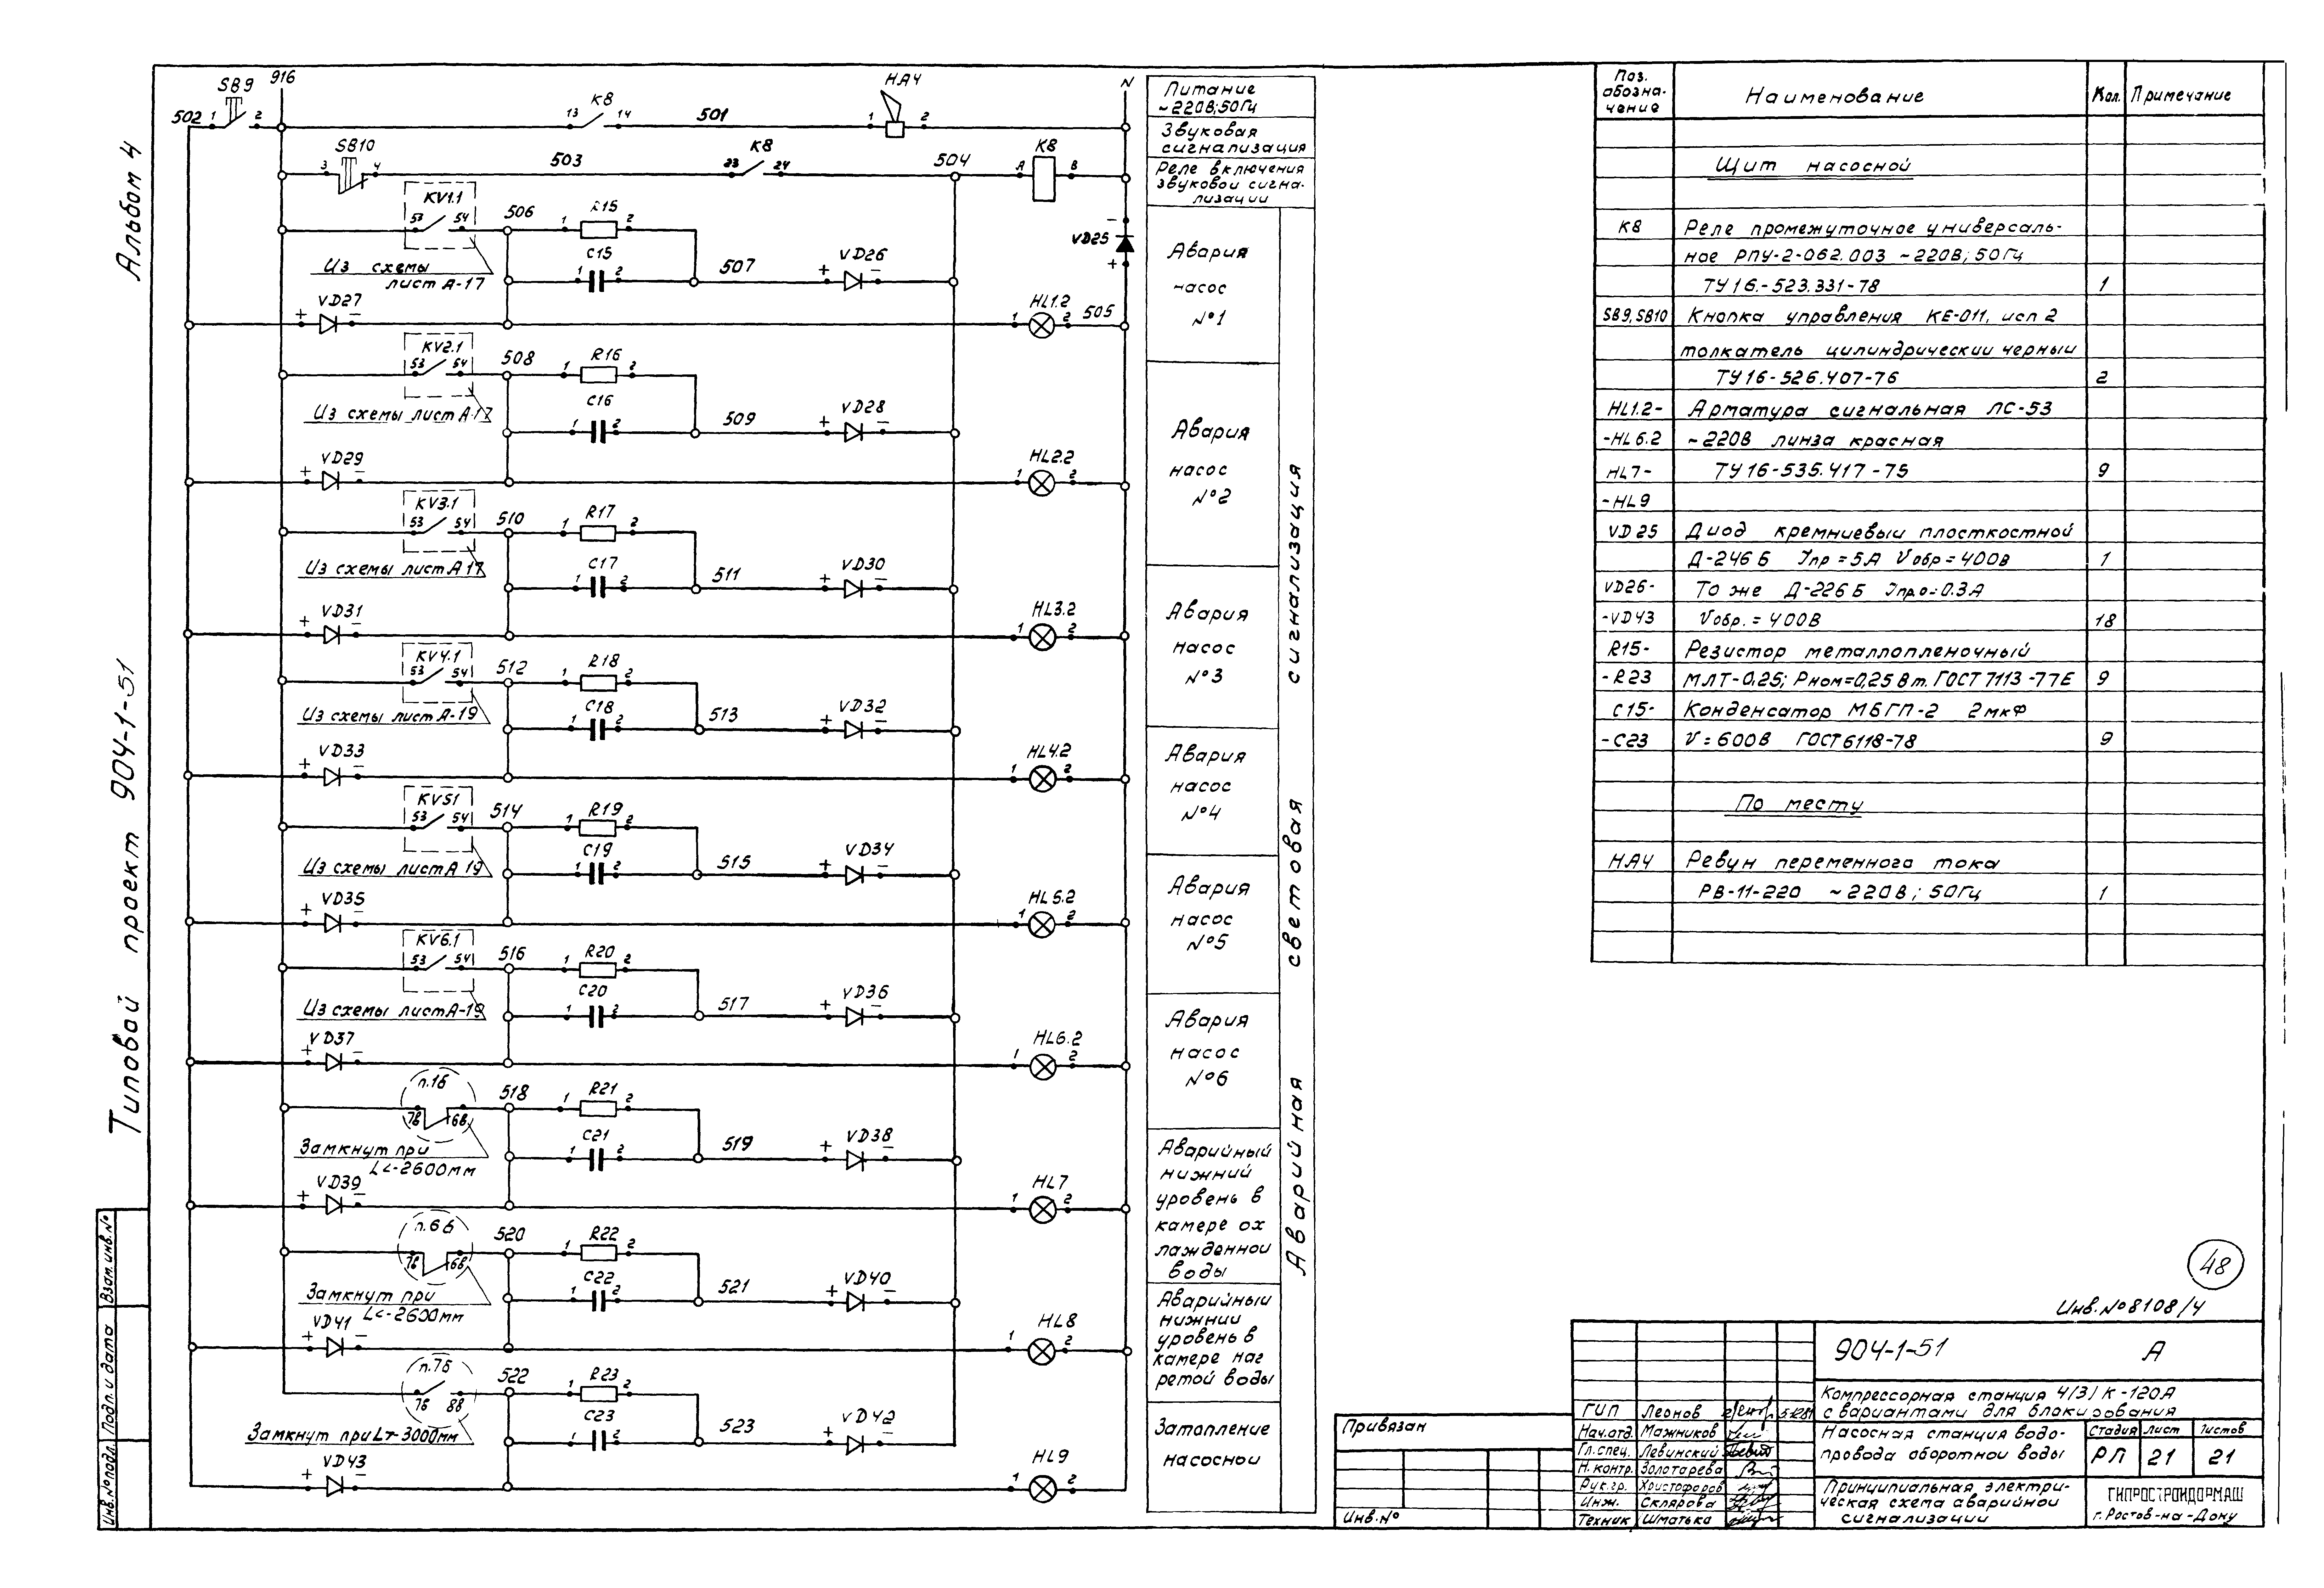 Альбом 4
Типовой проект 904-1-51
Инв.№подл. Подп. и дата Взам.инв.№
502 1 SB9 2 916
13 K8 14 501 1 НА4 2 N
3 SB10 4 503 23 K8 24 504 A K8 B
KV1.1 53 54 506 1 R15 2
Из схемы
лист А-17
1 C15 2 507 + VD26 -
- VD25 +
+ VD27 - 1 HL1.2 2 505
KV2.1 53 54 508 1 R16 2
Из схемы лист А-17
1 C16 2 509 + VD28 -
+ VD29 - 1 HL2.2 2
KV3.1 53 54 510 1 R17 2
Из схемы лист А17
1 C17 2 511 + VD30 -
+ VD31 - 1 HL3.2 2
KV4.1 53 54 512 1 R18 2
Из схемы лист А-19
1 C18 2 513 + VD32 -
+ VD33 - 1 HL4.2 2
KV51 53 54 514 1 R19 2
Из схемы лист А 19
1 C19 2 515 + VD34 -
+ VD35 - 1 HL5.2 2
KV6.1 53 54 516 1 R20 2
Из схемы лист А-19
1 C20 2 517 + VD36 -
+ VD37 - 1 HL6.2 2
п.1б 7в 6в 518 1 R21 2
Замкнут при
L<-2600мм
1 C21 2 519 + VD38 -
+ VD39 - 1 HL7 2
п.6б 7в 6в 520 1 R22 2
Замкнут при
L<-2600мм
1 C22 2 521 + VD40 -
+ VD41 - 1 HL8 2
п.7б 7в 8в 522 1 R23 2
Замкнут при L 3000мм
1 C23 2 523 + VD42 -
+ VD43 - 1 HL9 2
Питание
~220В;50Гц
Звуковая
сигнализация
Реле включения
звуковой сигна-
лизации
Авария
насос
№1
Авария
насос
№2
Авария
насос
№3
Авария
насос
№4
Авария
насос
№5
Авария
насос
№6
Аварийный
нижний
уровень в
камере ох
лажденной
воды
Аварийный
нижний
уровень в
камере наг
ретой воды
Затопление
насосной
Аварийная световая сигнализация
Поз. обозна-чение Наименование Кол. Примечание
Щит насосной
K8 Реле промежуточное универсаль-
ное РПУ-2-062.003 ~220В; 50Гц
ТУ16.-523.331-78 1
SB9,SB10 Кнопка управления КЕ-011, исп 2
толкатель цилиндрический черный
ТУ16-526.407-76 2
HL1.2- Арматура сигнальная ЛС-53
-HL6.2 ~220В линза красная
HL7- ТУ16-535.417-75 9
-HL9
VD25 Диод кремниевый плосткостной
Д-246Б Iпр=5А Vобр=400В 1
VD26- То же Д-226Б Iпр0=0.3А
-VD43 Vобр.=400В 18
R15- Резистор металлопленочный
-R23 МЛТ-0,25; Рном=0,25Вт. ГОСТ7113-77Е 9
C15- Конденсатор МБГП-2 2мкФ
-C23 V=600В ГОСТ6118-78 9
По месту
НА4 Ревун переменного тока
РВ-11-220 ~220В; 50Гц 1
48
Инв.№8108/4
904-1-51 А
Компрессорная станция 4/3/К-120А
с вариантами для блокирования
ГИП Леонов
Нач.отд. Мажников
Гл.спец. Левинский
Н.контр. Золотарева
Рук.гр. Христофоров
Инж. Склярова
Техник Шматька
Насосная станция водо-
провода оборотной воды
Стадия Лист Листов
РП 21 21
Принципиальная электри-
ческая схема аварийной
сигнализации
ГИПРОСТРОЙДОРМАШ
г.Ростов-на-Дону
Привязан
Инв.№